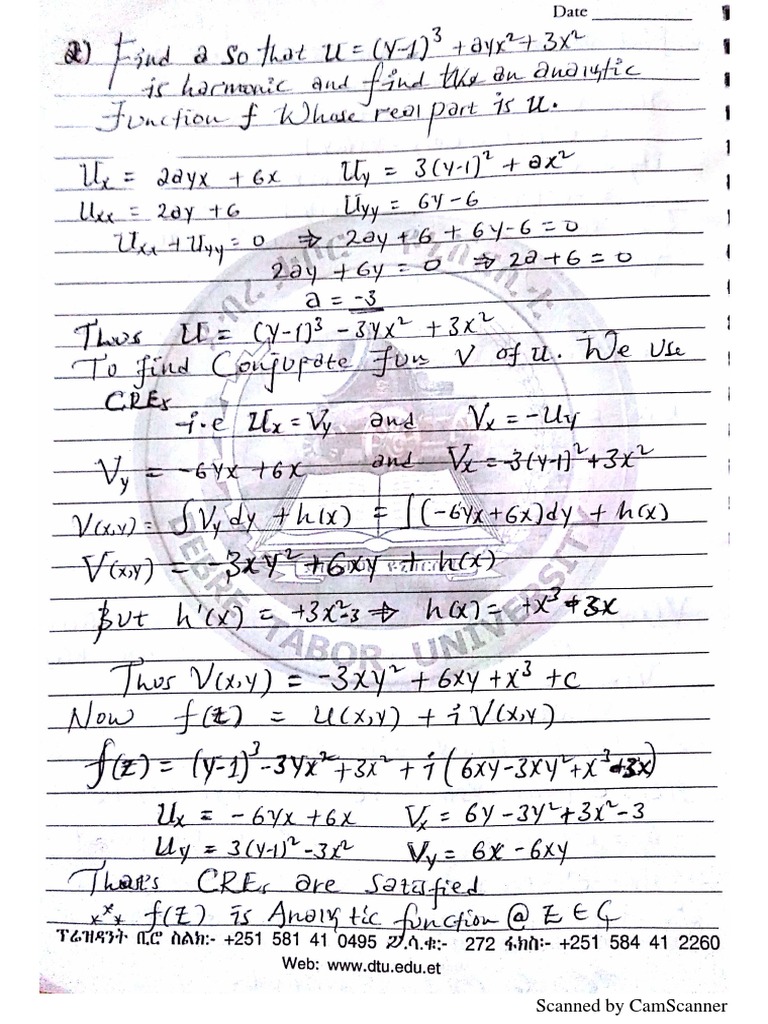 Date
2) Find a so that u = (y-1)³ + ayx² + 3x²
is harmonic and find the an analytic
Function f whose real part is u.
Ux = 2ayx + 6x Uy = 3(y-1)² + ax²
Uxx = 2ay + 6 Uyy = 6y - 6
Uxx + Uyy = 0 ⇒ 2ay + 6 + 6y - 6 = 0
2ay + 6y = 0 ⇒ 2a + 6 = 0
a = -3
Thus U = (y-1)³ - 3yx² + 3x²
To find Conjugate fun V of u. We use
CREs
i.e Ux = Vy and Vx = -Uy
Vy = -6yx + 6x and Vx = -3(y-1)² + 3x²
V(x,y) = ∫Vy dy + h(x) = ∫(-6yx + 6x)dy + h(x)
V(x,y) = -3xy² + 6xy + h(x)
But h'(x) = +3x²-3 ⇒ h(x) = +x³ + 3x
Thus V(x,y) = -3xy² + 6xy + x³ + c
Now f(z) = u(x,y) + i V(x,y)
f(z) = (y-1)³ - 3yx² + 3x² + i (6xy - 3xy² + x³ + 3x)
Ux = -6yx + 6x Vx = 6y - 3y² + 3x² - 3
Uy = 3(y-1)² - 3x² Vy = 6x - 6xy
That's CREs are satisfied
f(z) is Analytic function @ z ∈ ₵
DEBRE TABOR UNIVERSITY
ፕሬዝዳንት ቢሮ ስልክ:- +251 581 41 0495 ፖ.ሳ.ቁ:- 272 ፋክስ:- +251 584 41 2260
Web: www.dtu.edu.et
Scanned by CamScanner